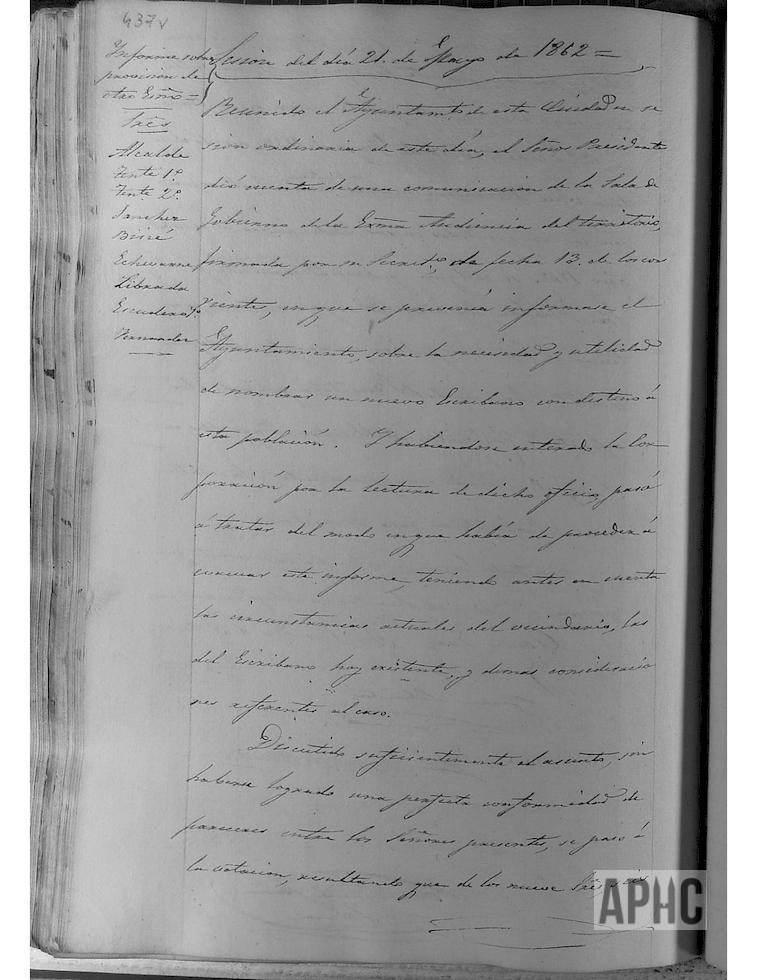 437v
Informe sobre
provision de
otro Essno =
Sres
Alcalde
Tente 1.º
Tente 2.º
Sanchez
Biné
Echevarne
Librada
Escudero
Fernandez
Sesion del dia 21. de Mayo de 1862 =
Reunido el Ayuntamto de esta Ciudad en se
sion ordinaria de este dia, el Señor Presidente
dió cuenta de una comunicacion de la Sala de
Gobierno de la Exma Audiencia del territorio,
firmada por su Secreto, de fecha 13. de los cor
rientes, en que se prevenia informase el
Ayuntamiento, sobre la necesidad y utilidad
de nombrar un nuevo Escribano con destino á
esta poblacion. Y habiendose enterado la Cor
poracion por la lectura de dicho oficio, pasó
á tratar del modo en que habia de proceder á
evacuar este informe, teniendo antes en cuenta
las circunstancias actuales del vecindario, las
del Escribano hoy existente, y demas consideracio
nes referentes al caso.
Discutido suficientemente el asunto, sin
haberse logrado una perfecta conformidad de
pareceres entre los Señores presentes, se pasó á
la votacion, resultando que de los nueve Sres seis
APHC